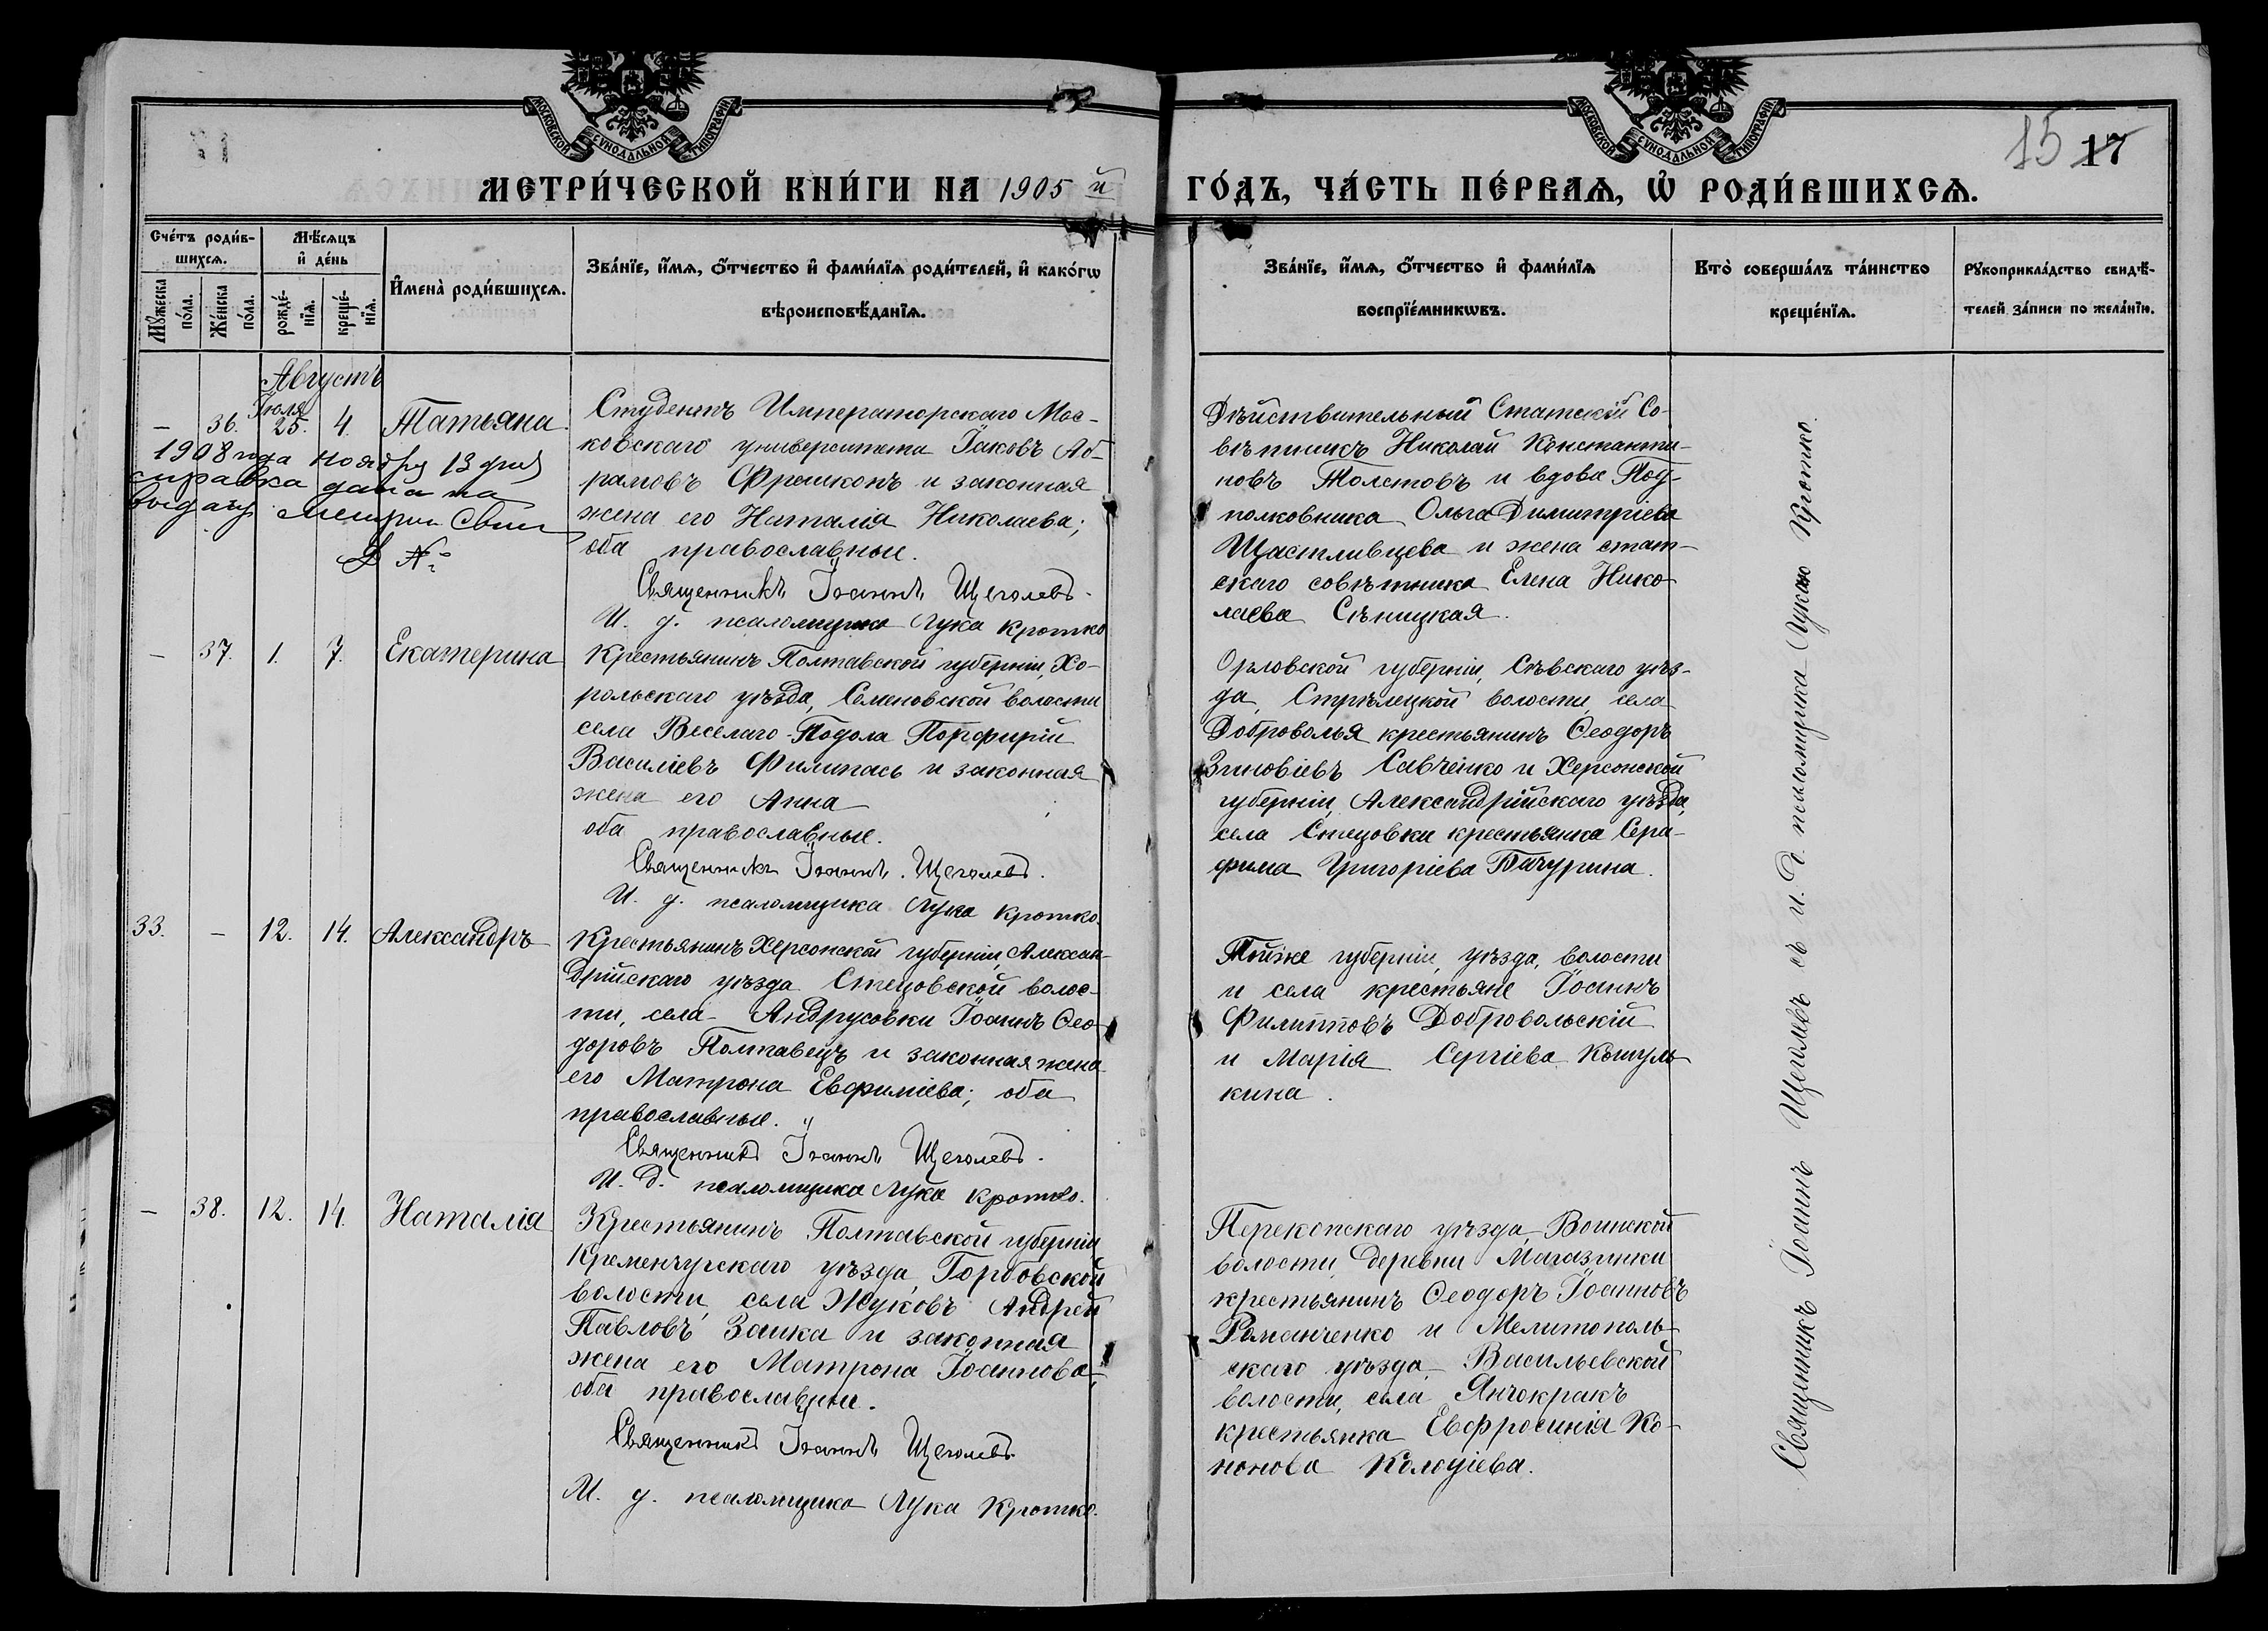 МОСКОВСКОЙ СѴНОДАЛЬНОЙ ТИПОГРАФІИ
МОСКОВСКОЙ СѴНОДАЛЬНОЙ ТИПОГРАФІИ
15 17
МЕТРИ́ЧЕСКОЙ КНИ́ГИ НА 1905 й ГО́ДЪ, ЧА́СТЬ ПЕ́РВАѦ, Ѡ҆ РОДИ́ВШИХСѦ.
Сче́тъ роди́в-
шихсѧ.
Мѣ́сѧцъ
и҆ де́нь
Мꙋ́жеска
по́ла.
Же́нска
по́ла.
рожде́-
нїѧ.
креще́-
нїѧ.
И҆мена̀ роди́вшихсѧ.
Зва́нїе, и҆́мѧ, ѻ҆́тчество и҆ фами́лїѧ роди́телей, и҆ како́гѡ
вѣроисповѣ́данїѧ.
Зва́нїе, и҆́мѧ, ѻ҆́тчество и҆ фами́лїѧ
воспрїе́мникѡвъ.
Кто̀ соверша́лъ та́инство
креще́нїѧ.
Рꙋкоприкла́дство свидѣ́-
телей за́писи по жела́нїю.
Августъ
Іюля
— 36. 25. 4. Татьяна
1908 года ноября 13 дня
справка дана на
выдачу метрич. Свид
№
Студентъ Императорскаго Мос-
ковскаго университета Іаковъ Аб-
рамовъ Френкель и законная
жена его Наталія Николаева;
оба православные.
Священникъ Іоаннъ Щеголевъ.
И. д. псаломщика Лука Кротко
Дѣйствительный Статскій Со-
вѣтникъ Николай Константи-
новъ Толстовъ и вдова Под-
полковника Ольга Димитріева
Щастливцева и жена стат-
скаго совѣтника Елена Нико-
лаева Сѣницкая.
— 37. 1. 7. Екатерина
Крестьянинъ Полтавской губерніи, Хо-
рольскаго уѣзда, Семеновской волости
села Веселаго-Подола Порфирій
Василіевъ Филипась и законная
жена его Анна
оба православные.
Священникъ Іоаннъ Щеголевъ.
И. д. псаломщика Лука Кротко.
Орловской губерніи, Сѣвскаго уѣз-
да, Стрѣлецкой волости, села
Доброволья крестьянинъ Ѳеодоръ
Зиновіевъ Савченко и Херсонской
губерніи, Александрійскаго уѣзда,
села Стецовки крестьянка Сера-
фима Григоріева Бачурина.
33. — 12. 14. Александръ
Крестьянинъ Херсонской губерніи, Алексан-
дрійскаго уѣзда Стецовской волос-
ти, села Андрусовки Іоаннъ Ѳео-
доровъ Полтавецъ и законная жена
его Матрона Евфиміева; оба
православные.
Священникъ Іоаннъ Щеголевъ.
И. д. псаломщика Лука Кротко.
Той же губерніи, уѣзда, волости
и села крестьяне Іоаннъ
Филипповъ Добровольскій
и Марія Сергіева Кошуль-
кина.
— 38. 12. 14. Наталія
Крестьянинъ Полтавской губерніи
Кременчугскаго уѣзда, Горбовской
волости, села Жуковъ Андрей
Павловъ Заика и законная
жена его Матрона Іоаннова,
оба православные.
Священникъ Іоаннъ Щеголевъ.
И. д. псаломщика Лука Кротко.
Перекопскаго уѣзда, Воинской
волости, деревни Магазинки
крестьянинъ Ѳеодоръ Іоанновъ
Романченко и Мелитополь-
скаго уѣзда, Васильевской
волости, села Янчокракъ
крестьянка Евфросинія Ко-
нонова Колодіева.
Священникъ Іоаннъ Щеголевъ съ и. д. псаломщика Лукою Кротко.